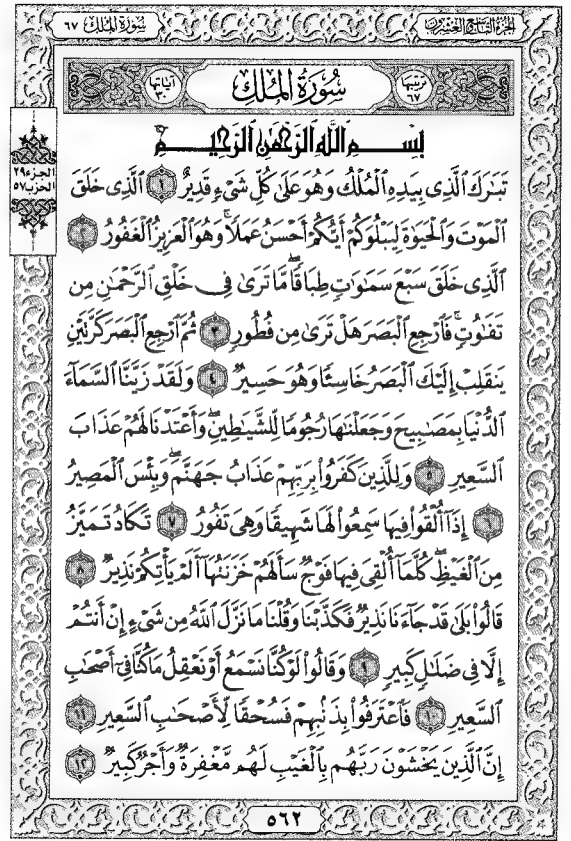 الجزء التاسع والعشرون
سورة الملك ٦٧
ترتيبها ٦٧
سُورَةُ المُلكِ
آياتها ٣٠
الجزء ٢٩
الحزب ٥٧
بِسْمِ اللَّهِ الرَّحْمَٰنِ الرَّحِيمِ
تَبَٰرَكَ ٱلَّذِى بِيَدِهِ ٱلْمُلْكُ وَهُوَ عَلَىٰ كُلِّ شَىْءٍ قَدِيرٌ ١ ٱلَّذِى خَلَقَ
ٱلْمَوْتَ وَٱلْحَيَوٰةَ لِيَبْلُوَكُمْ أَيُّكُمْ أَحْسَنُ عَمَلًا ۚ وَهُوَ ٱلْعَزِيزُ ٱلْغَفُورُ ٢
ٱلَّذِى خَلَقَ سَبْعَ سَمَٰوَٰتٍ طِبَاقًا ۖ مَّا تَرَىٰ فِى خَلْقِ ٱلرَّحْمَٰنِ مِن
تَفَٰوُتٍ ۖ فَٱرْجِعِ ٱلْبَصَرَ هَلْ تَرَىٰ مِن فُطُورٍ ٣ ثُمَّ ٱرْجِعِ ٱلْبَصَرَ كَرَّتَيْنِ
يَنقَلِبْ إِلَيْكَ ٱلْبَصَرُ خَاسِئًا وَهُوَ حَسِيرٌ ٤ وَلَقَدْ زَيَّنَّا ٱلسَّمَآءَ
ٱلدُّنْيَا بِمَصَٰبِيحَ وَجَعَلْنَٰهَا رُجُومًا لِّلشَّيَٰطِينِ ۖ وَأَعْتَدْنَا لَهُمْ عَذَابَ
ٱلسَّعِيرِ ٥ وَلِلَّذِينَ كَفَرُوا۟ بِرَبِّهِمْ عَذَابُ جَهَنَّمَ ۖ وَبِئْسَ ٱلْمَصِيرُ
٦ إِذَآ أُلْقُوا۟ فِيهَا سَمِعُوا۟ لَهَا شَهِيقًا وَهِىَ تَفُورُ ٧ تَكَادُ تَمَيَّزُ
مِنَ ٱلْغَيْظِ ۖ كُلَّمَآ أُلْقِىَ فِيهَا فَوْجٌ سَأَلَهُمْ خَزَنَتُهَآ أَلَمْ يَأْتِكُمْ نَذِيرٌ ٨
قَالُوا۟ بَلَىٰ قَدْ جَآءَنَا نَذِيرٌ فَكَذَّبْنَا وَقُلْنَا مَا نَزَّلَ ٱللَّهُ مِن شَىْءٍ إِنْ أَنتُمْ
إِلَّا فِى ضَلَٰلٍ كَبِيرٍ ٩ وَقَالُوا۟ لَوْ كُنَّا نَسْمَعُ أَوْ نَعْقِلُ مَا كُنَّا فِىٓ أَصْحَٰبِ
ٱلسَّعِيرِ ١٠ فَٱعْتَرَفُوا۟ بِذَنۢبِهِمْ فَسُحْقًا لِّأَصْحَٰبِ ٱلسَّعِيرِ ١١
إِنَّ ٱلَّذِينَ يَخْشَوْنَ رَبَّهُم بِٱلْغَيْبِ لَهُم مَّغْفِرَةٌ وَأَجْرٌ كَبِيرٌ ١٢
٥٦٢